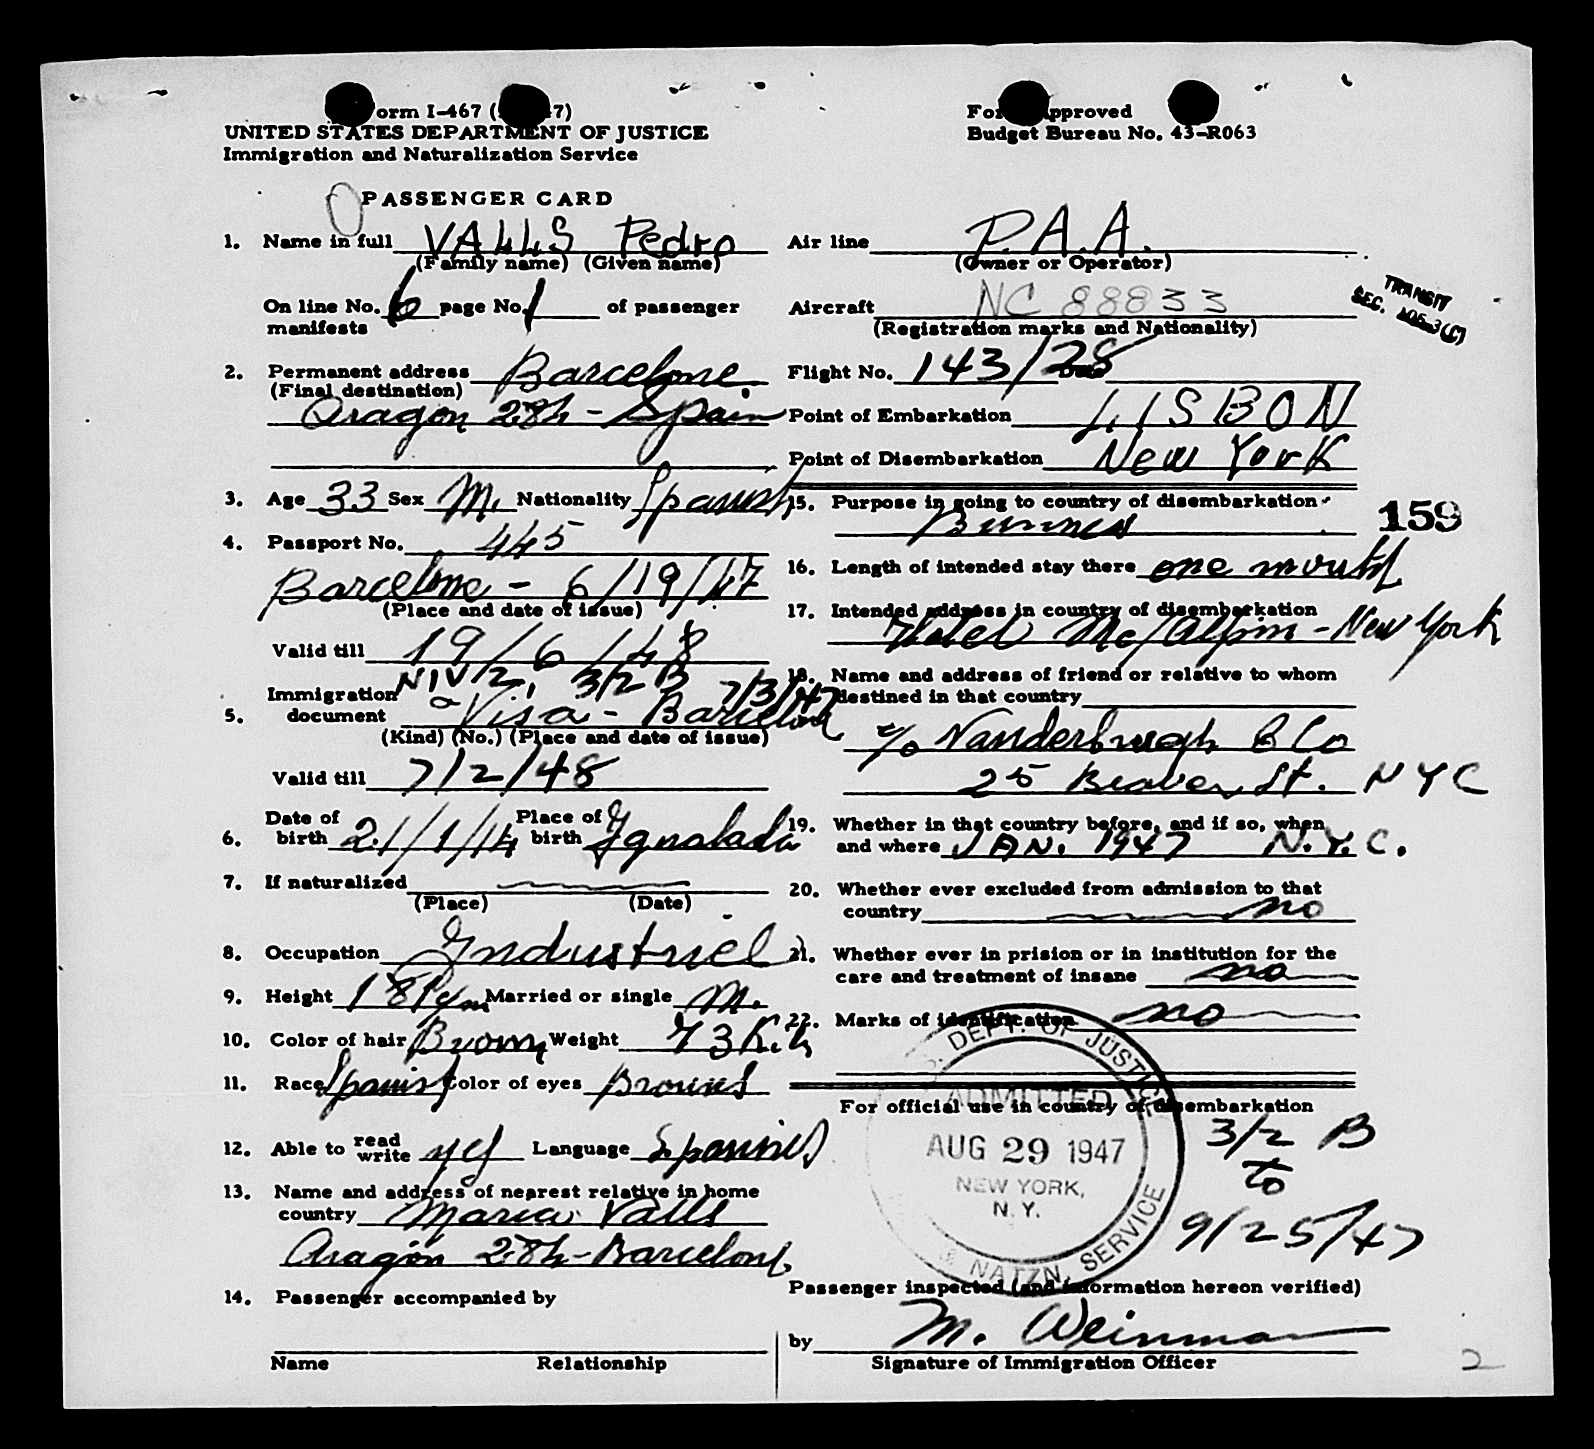 Form I-467 (
UNITED STATES DEPARTMENT OF JUSTICE
Immigration and Naturalization Service
Form Approved
Budget Bureau No. 43-R063
PASSENGER CARD
1. Name in full VALLS Pedro
(Family name) (Given name)
On line No. 6 page No. 1 of passenger
manifests
2. Permanent address Barcelone.
(Final destination)
Aragon 282 - Spain
3. Age 33 Sex M. Nationality Spanish
4. Passport No. 445
Barcelone - 6/19/47
(Place and date of issue)
Valid till 19/6/48
NIV 2, 3/2 B 7/3/47
5. Immigration document Visa - Barcelone
(Kind) (No.) (Place and date of issue)
Valid till 7/2/48
6. Date of birth 21/1/14 Place of birth Ygualada
7. If naturalized
(Place) (Date)
8. Occupation Industriel
9. Height Married or single M.
10. Color of hair Brown Weight 73 K.
11. Race Spanish Color of eyes Browns
12. Able to read write yes Language Spanish
13. Name and address of nearest relative in home
country Maria Valls
Aragon 282 - Barcelone
14. Passenger accompanied by
Name Relationship
Air line P.A.A.
(Owner or Operator)
Aircraft NC 88833
(Registration marks and Nationality)
TRANSIT
SEC. 3(C)
Flight No. 143/28
Point of Embarkation LISBON
Point of Disembarkation New York
15. Purpose in going to country of disembarkation
Business
159
16. Length of intended stay there one month
17. Intended address in country of disembarkation
Hotel McAlpin - New York
18. Name and address of friend or relative to whom
destined in that country
c/o Vanderbrugh & Co
25 Beaver St. NYC
19. Whether in that country before, and if so, when
and where JAN. 1947 N.Y.C.
20. Whether ever excluded from admission to that
country no
21. Whether ever in prision or in institution for the
care and treatment of insane no
22. Marks of identification no
For official use in country of disembarkation
DEPT. OF JUSTICE
ADMITTED
AUG 29 1947
NEW YORK,
N.Y.
& NATZN. SERVICE
3/2 B
to
9/25/47
Passenger inspected (and information hereon verified)
by M. Weinman
Signature of Immigration Officer
2